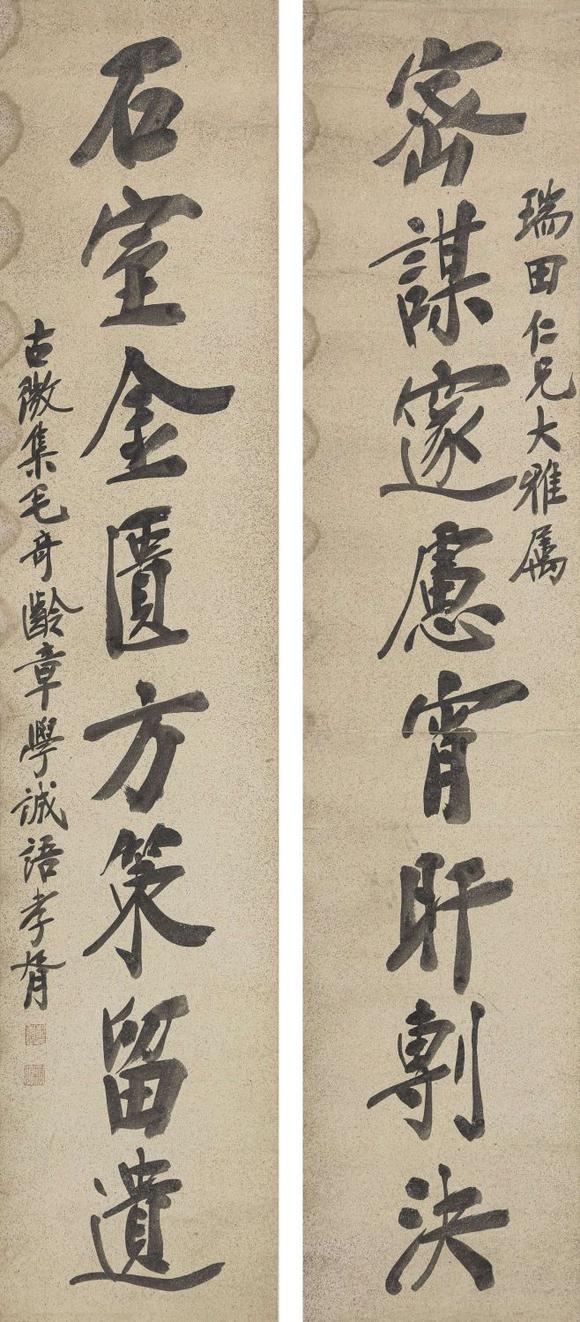 瑞田仁兄大雅属
密謀邃慮宵旰剸決
石室金匱方策留遺
古微集毛奇齡章學誠語孝胥